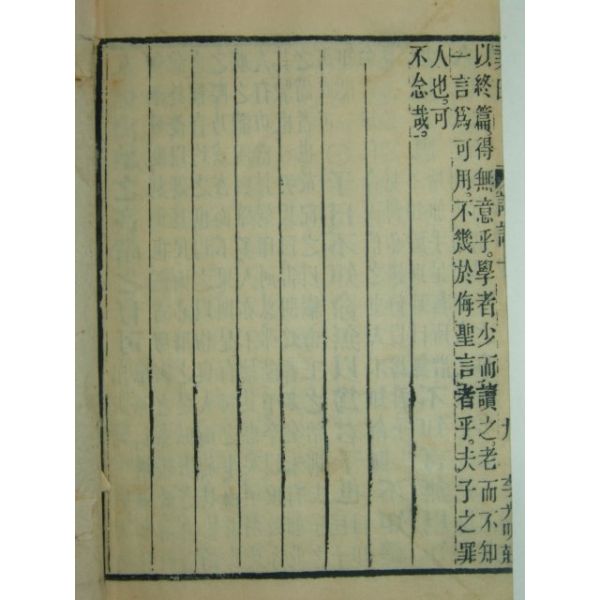 以終篇得無意乎。學者少而讀之。老而不知
一言爲可用。不幾於侮聖言者乎。夫子之罪
人也。可
不念哉。